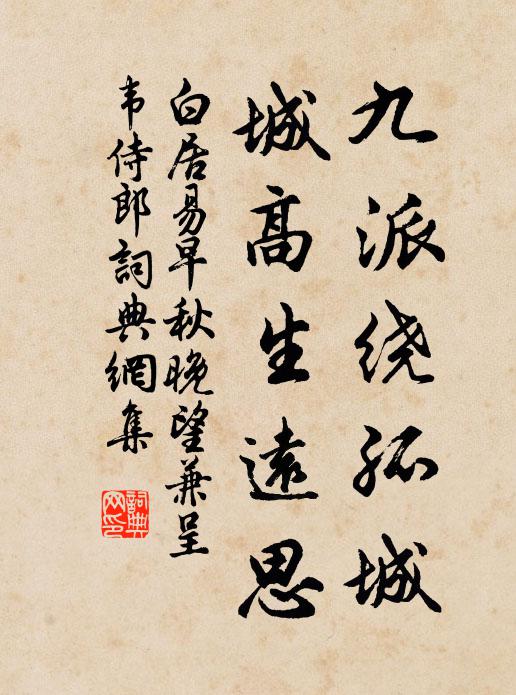 九派绕孤城
城高生遠思
白居易早秋晚望兼呈
韦侍郎詞典網集
詞典网印